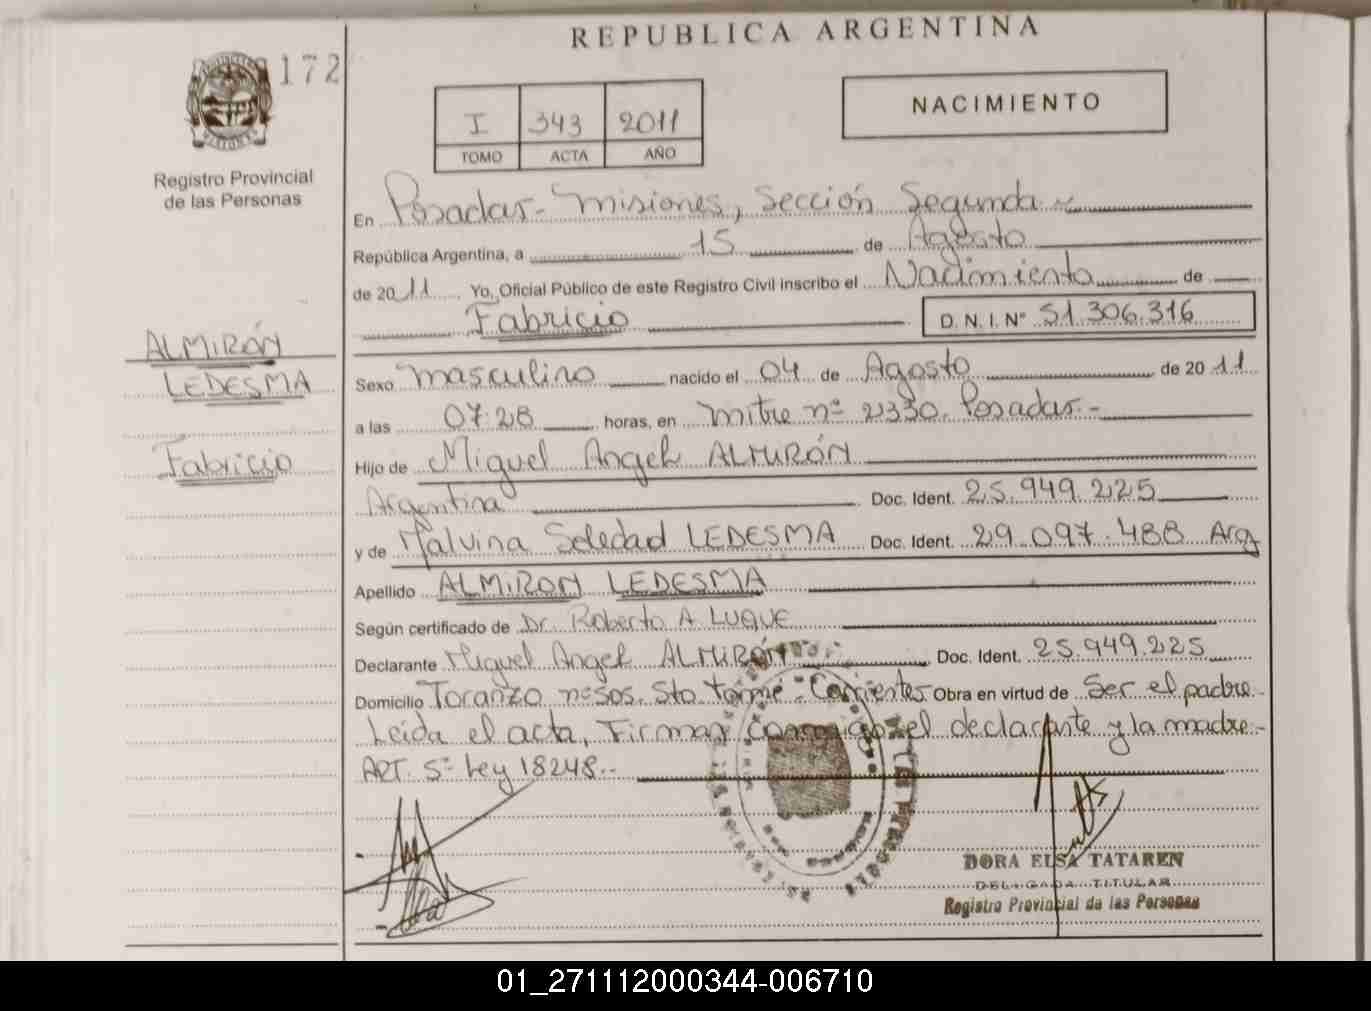 REPUBLICA ARGENTINA
172
I 343 2011
TOMO ACTA AÑO
NACIMIENTO
Registro Provincial
de las Personas
En Posadas - Misiones, Sección Segunda
República Argentina, a 15 de Agosto
de 2011 Yo, Oficial Público de este Registro Civil inscribo el Nacimiento de
Fabricio D. N. I. Nº 51.306.316
ALMIRÓN
LEDESMA
Fabricio
Sexo masculino nacido el 04 de Agosto de 2011
a las 07:28 horas, en mitre nº 2330. Posadas.-
Hijo de Miguel Angel ALMIRÓN
Argentina Doc. Ident. 25.949.225
y de Malvina Soledad LEDESMA Doc. Ident. 29.097.488 Arg
Apellido ALMIRON LEDESMA
Según certificado de Dr. Roberto A LUQUE
Declarante Miguel Angel ALMIRÓN Doc. Ident. 25.949.225
Domicilio Toranzo nº505. Sto tomé - Corrientes Obra en virtud de Ser el padre.
Leída el acta, Firman conmigo el declarante y la madre.-
ART. 5º Ley 18248.-
DORA ELSA TATAREN
DELEGADA TITULAR
Registro Provincial de las Personas
01_271112000344-006710